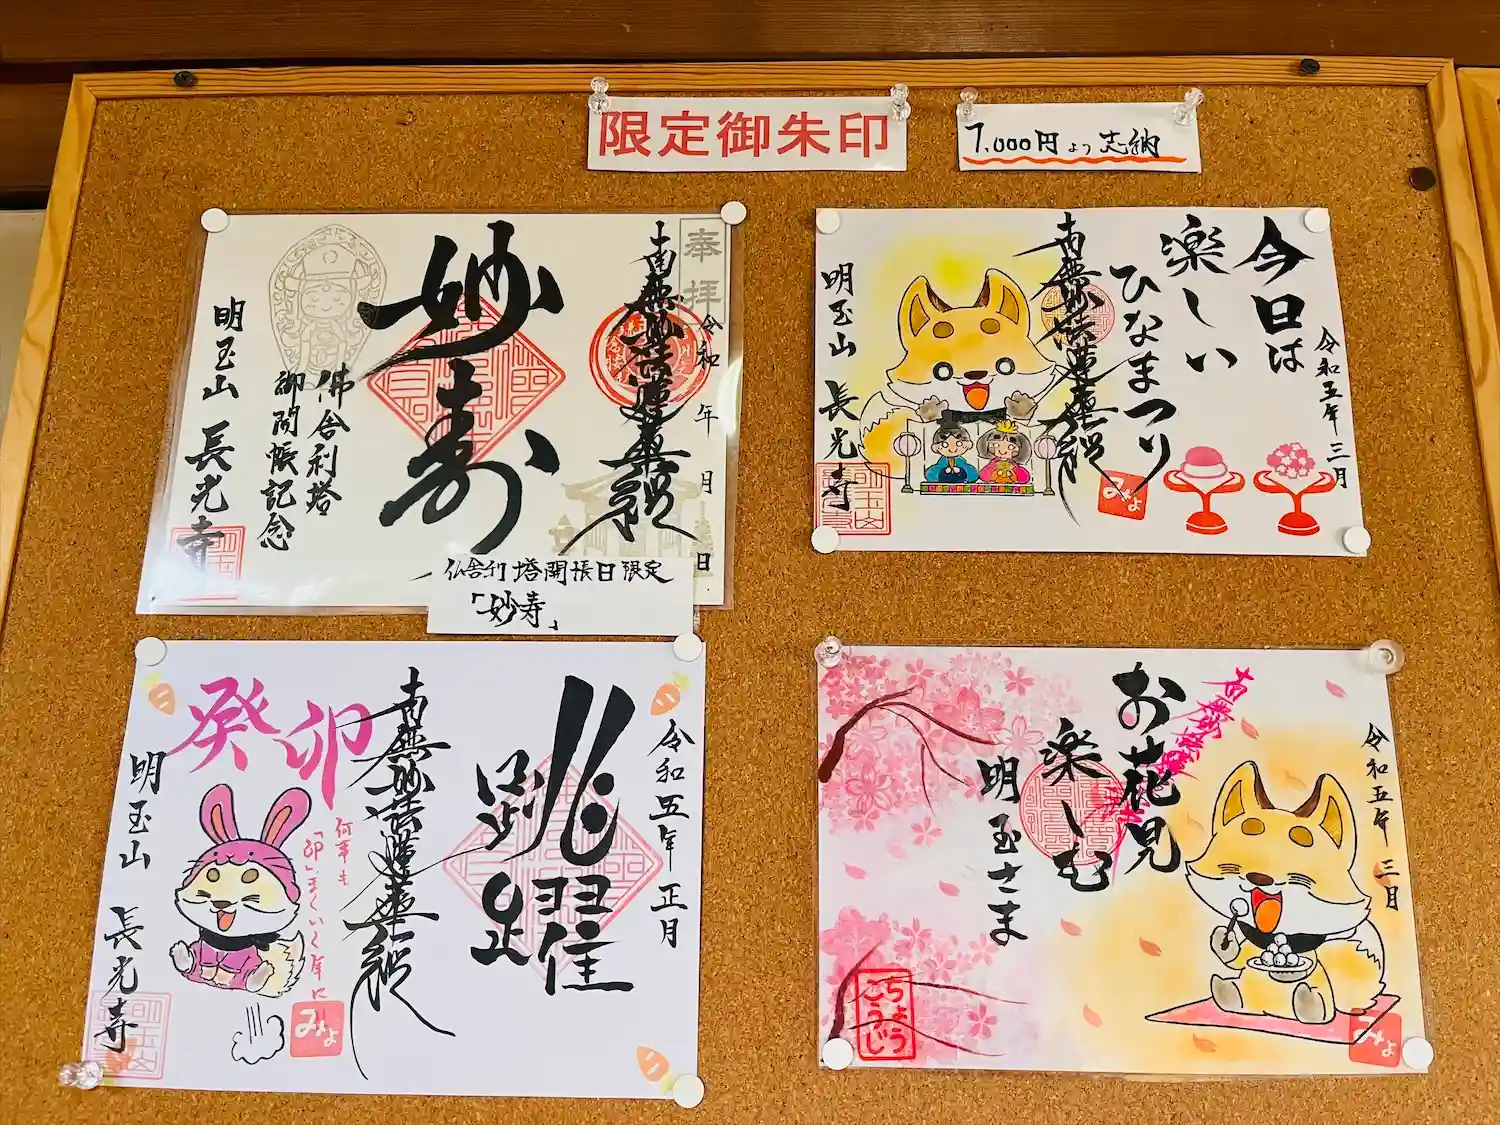 限定御朱印
7,000円より志納
奉拝
令和 年 月 日
南無妙法蓮華経
妙寿
佛舎利塔
御開帳記念
明玉山 長光寺
仏舎利塔開帳日限定
「妙寿」
令和五年三月
今日は
楽しい
ひなまつり
南無妙法蓮華経
明玉山 長光寺
みよ
令和五年 正月
跳躍
南無妙法蓮華経
癸卯
何事も
「卯」まくいく年に
明玉山 長光寺
みよ
令和五年 三月
南無妙法蓮華経
お花見
楽しむ
明玉さま
ちょう
こうじ
みよ